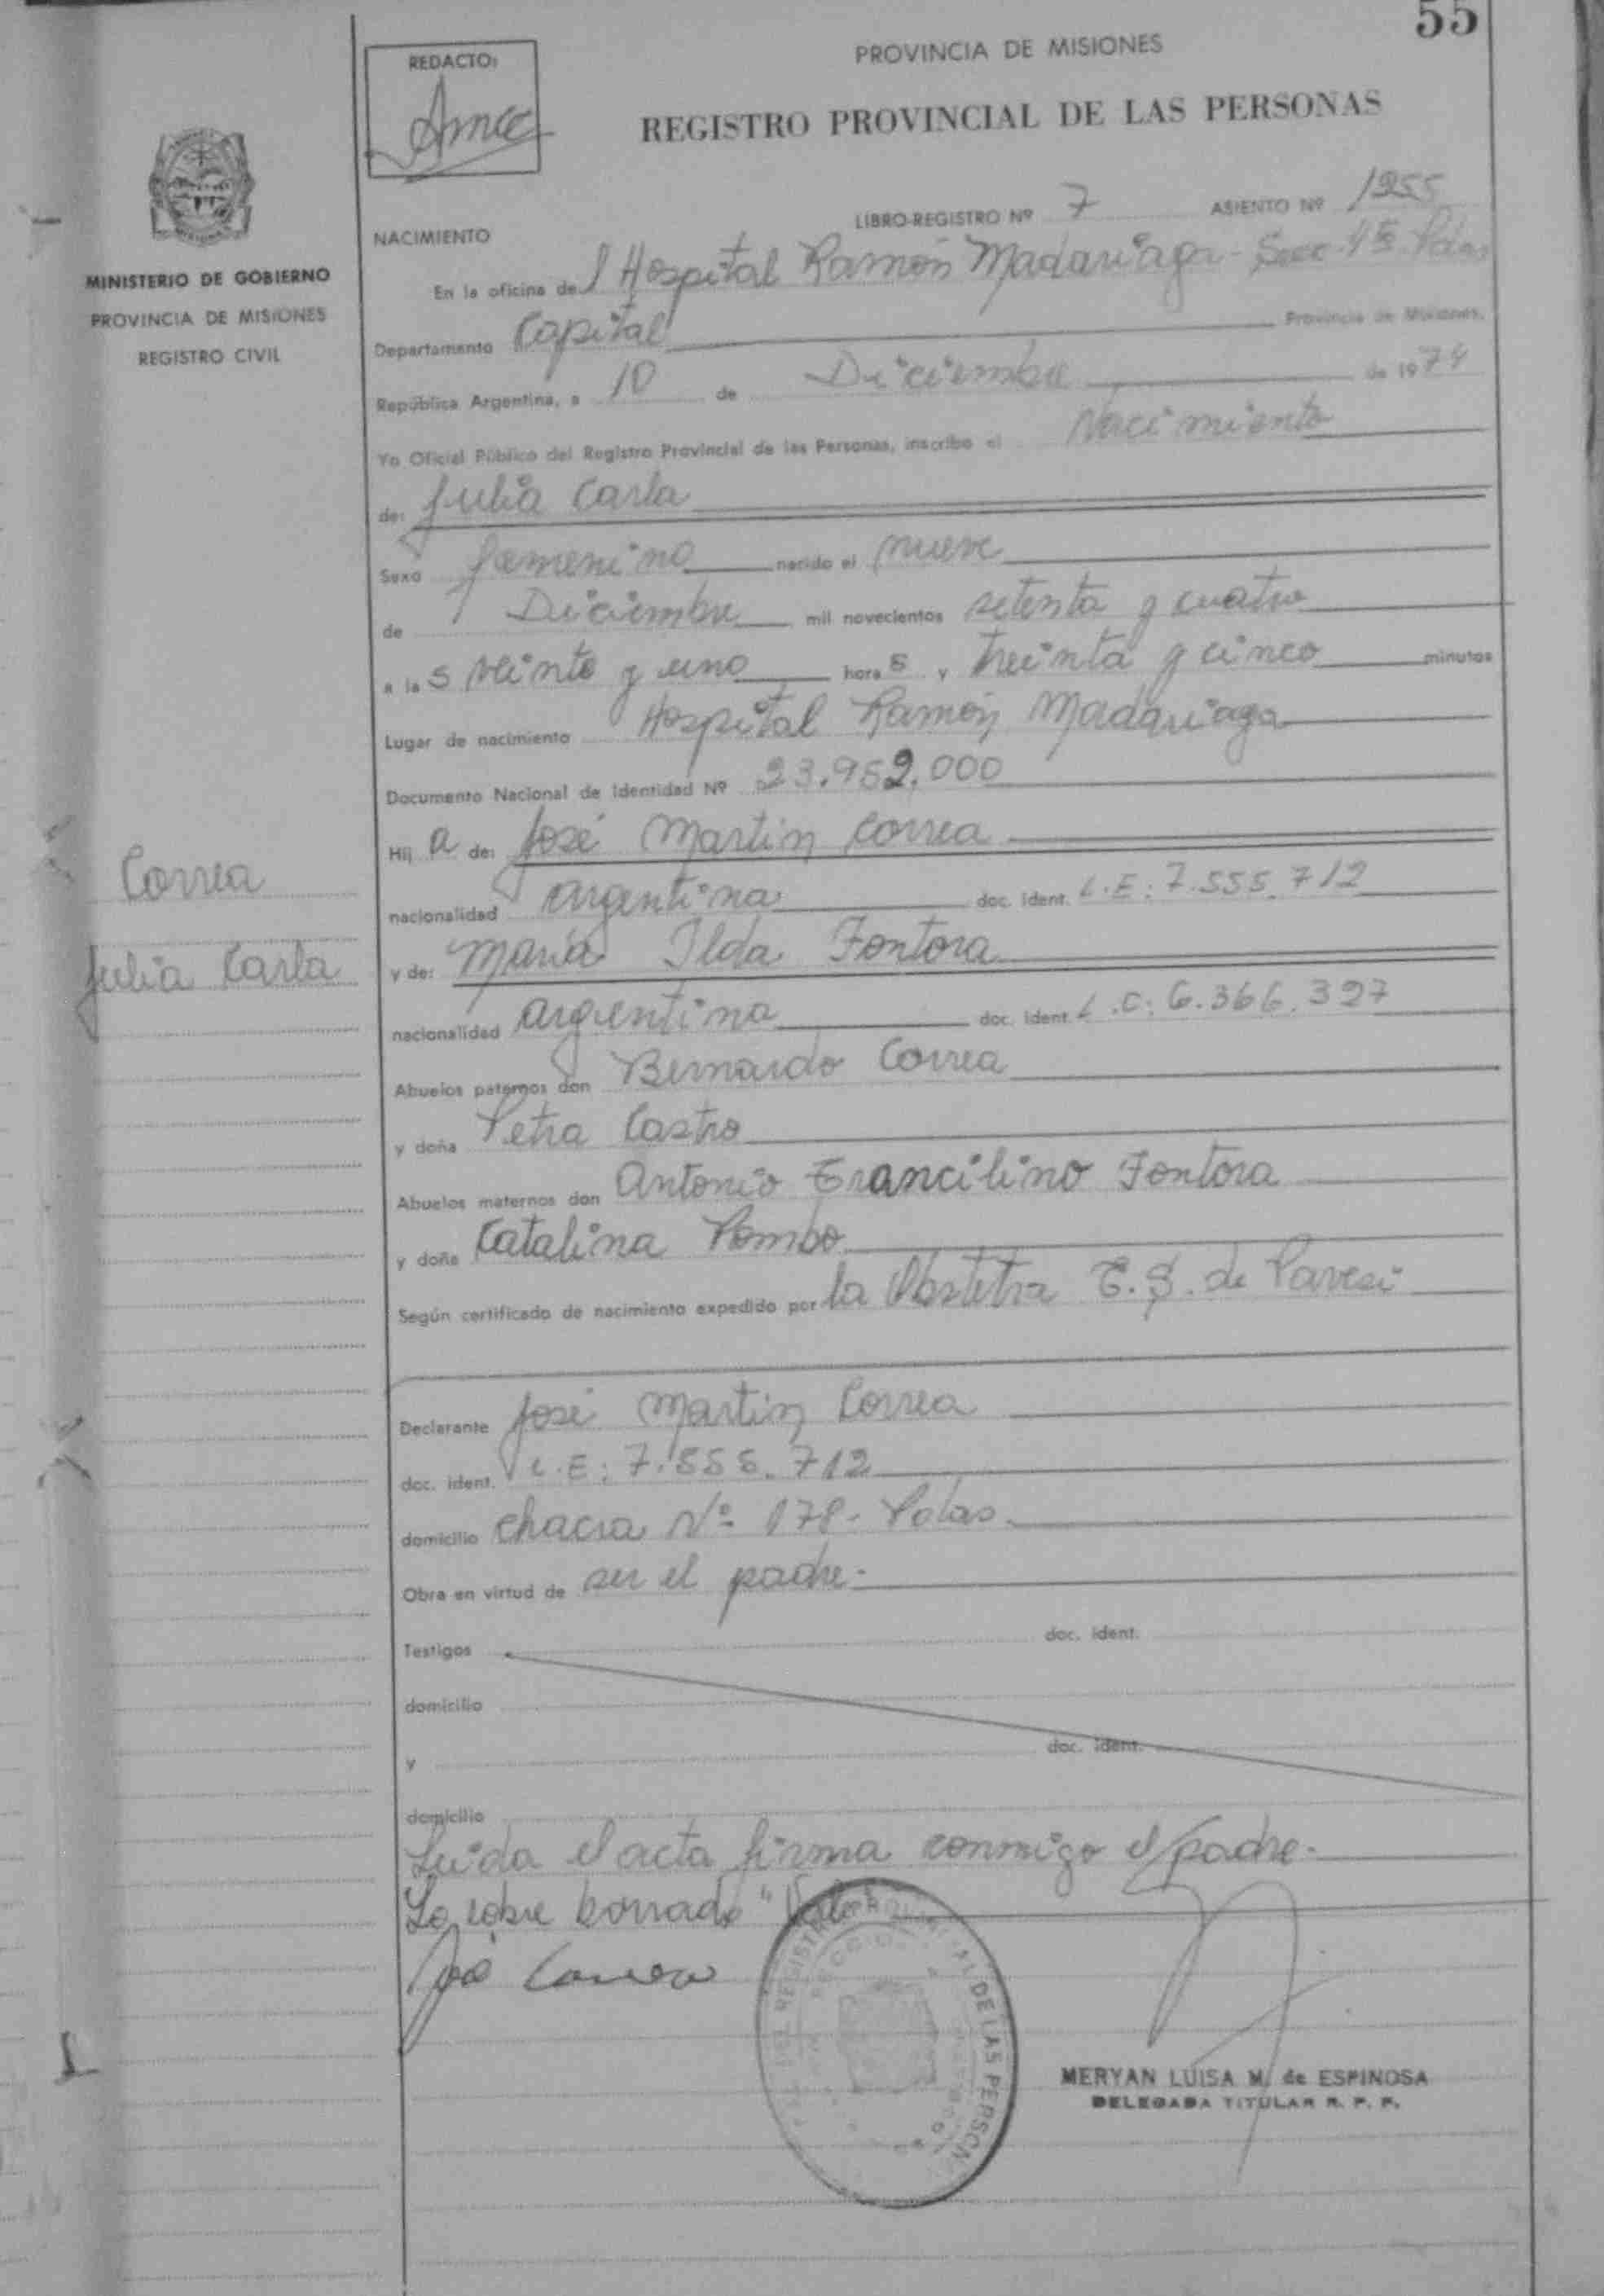 55
REDACTO:
PROVINCIA DE MISIONES
REGISTRO PROVINCIAL DE LAS PERSONAS
MINISTERIO DE GOBIERNO
PROVINCIA DE MISIONES
REGISTRO CIVIL
LIBRO-REGISTRO Nº 7 ASIENTO Nº 1255
NACIMIENTO
En la oficina del Hospital Ramón Madariaga - Secc. 4ª Pdas
Departamento Capital Provincia de Misiones,
República Argentina, a 10 de Diciembre de 1974
Yo Oficial Público del Registro Provincial de las Personas, inscribo el Nacimiento
de: Julia Carla
Sexo femenino nacido el nueve
de Diciembre mil novecientos setenta y cuatro
a las veinte y uno horas y treinta y cinco minutos
Lugar de nacimiento Hospital Ramón Madariaga
Documento Nacional de Identidad Nº 23.952.000
Hij a de: José Martin Correa
nacionalidad argentina doc. ident. L.E: 7.555.712
y de: María Ilda Fontora
nacionalidad argentina doc. ident. L.C: 6.366.327
Abuelos paternos don Bernardo Correa
y doña Petra Castro
Abuelos maternos don Antonio Francilino Fontora
y doña Catalina Pombo
Según certificado de nacimiento expedido por la Obstetra E.S. de Pavesi
Correa
Julia Carla
Declarante José Martin Correa
doc. ident. L.E: 7.555.712
domicilio chacra Nº 178- Pdas.
Obra en virtud de ser el padre-
Testigos doc. ident.
domicilio
y doc. ident.
domicilio
Leída el acta firma conmigo el padre-
Lo sobre borrado "Vale"
José Correa
REGISTRO PROVINCIAL DE LAS PERSON
MERYAN LUISA M. de ESPINOSA
DELEGADA TITULAR R. P. P.